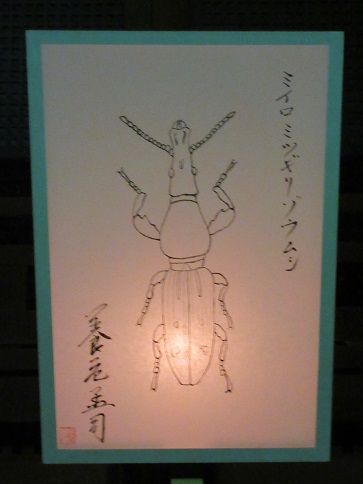 ミイロミツギリゾウムシ
養老孟司